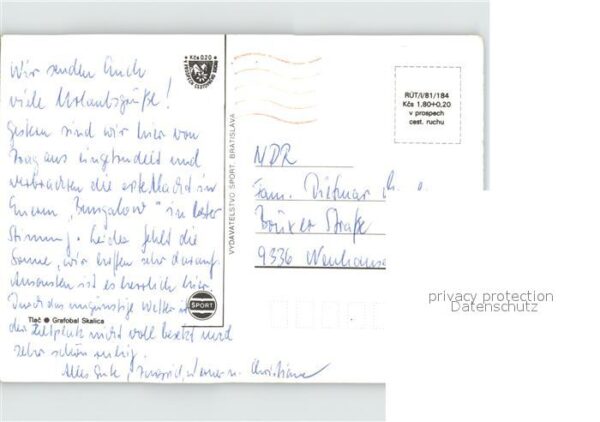 Wir senden Euch
viele Urlaubsgrüße!
Gestern sind wir hier von
Prag aus eingetrudelt und
verbrachten die erste Nacht in
Eurem "Bungalow" in bester
Stimmung. Leider fehlt die
Sonne, wir hoffen sehr darauf.
Ansonsten ist es herrlich hier.
Durch das ungünstige Wetter ist
der Zeltplatz nicht voll besetzt und
sehr schön ruhig.
Alles Gute, Ingrid, Werner u. Christiane
Tlač Grafobal Skalica
Kčs 0.20
V PROSPECH CESTOVNÉHO RUCHU
VYDAVATEĽSTVO ŠPORT, BRATISLAVA
ŠPORT
RÚT/I/81/184
Kčs 1,80+0,20
v prospech
cest. ruchu
NDR
Fam. Dietmar
Brüxer Straße
9336 Neuhausen
privacy protection
Datenschutz